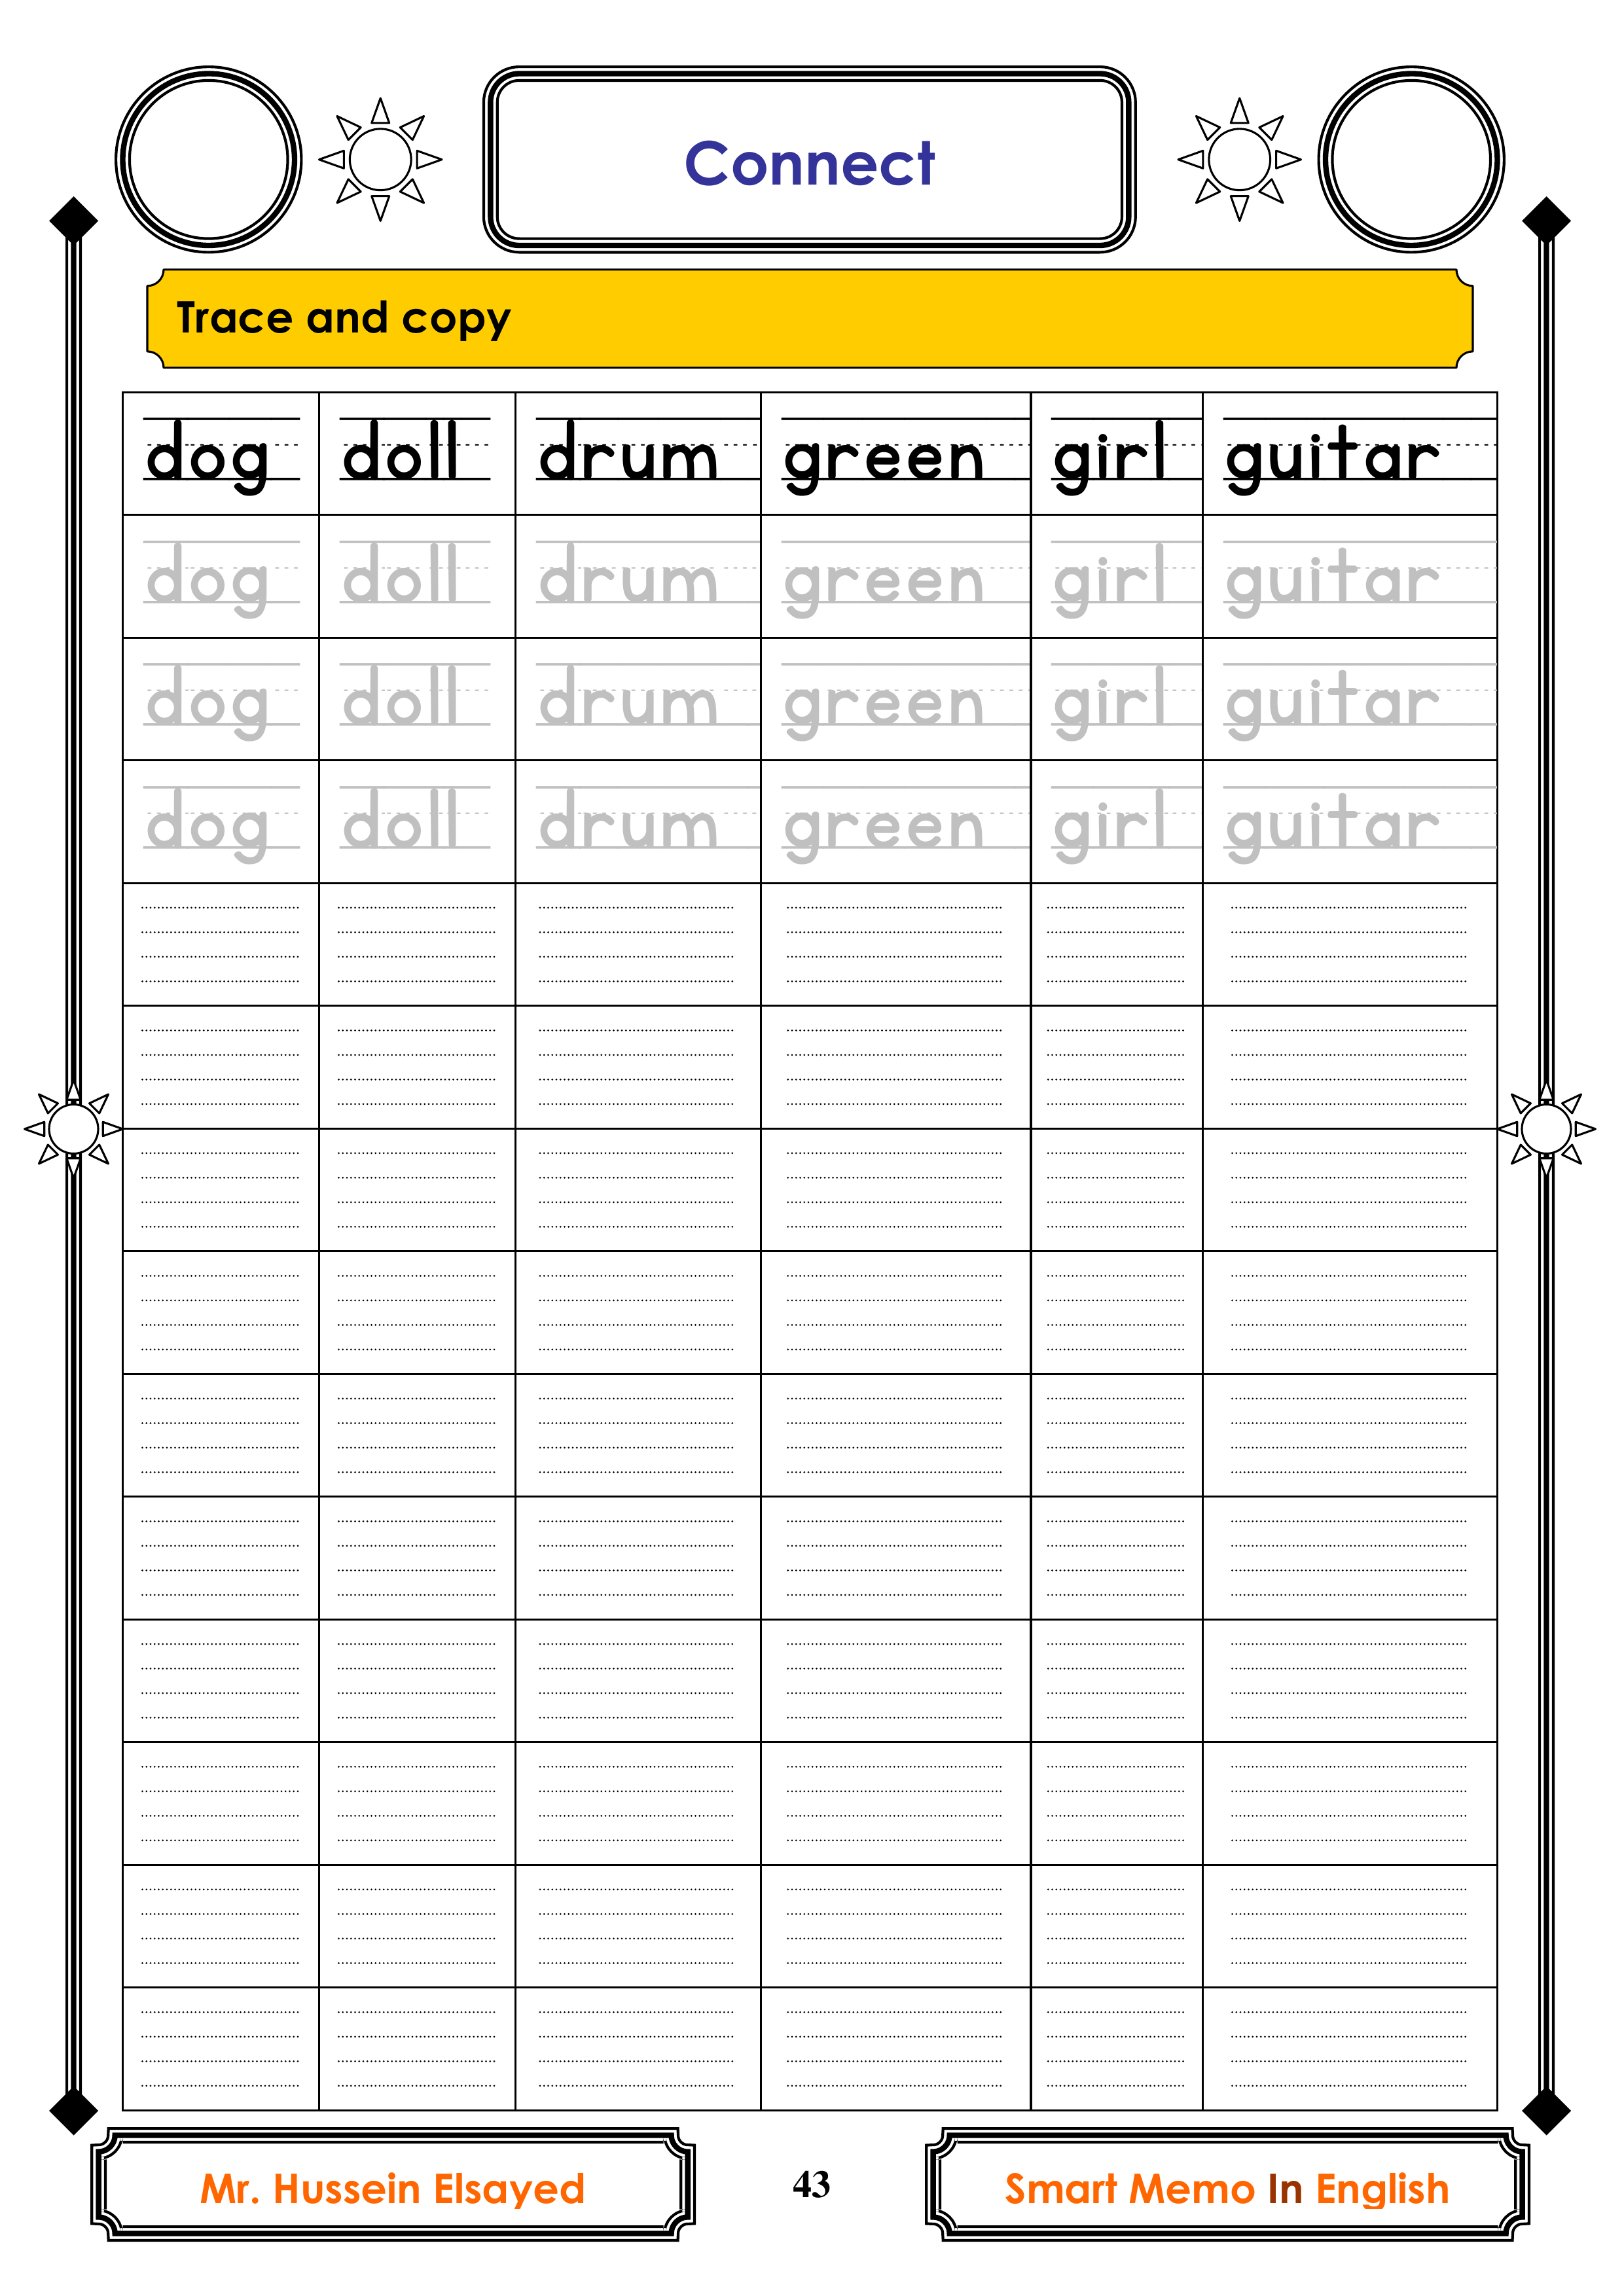 Connect
Trace and copy
dog doll drum green girl guitar
dog doll drum green girl guitar
dog doll drum green girl guitar
dog doll drum green girl guitar
Mr. Hussein Elsayed 43 Smart Memo In English